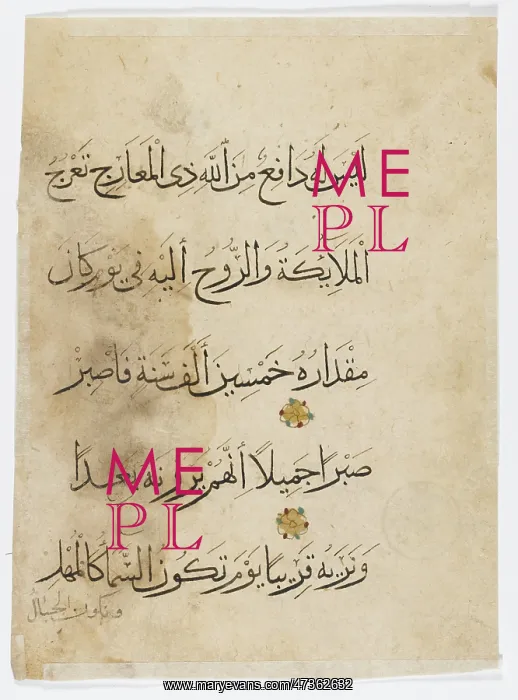 لَيْسَ لَهُ دَافِعٌ مِنَ اللَّهِ ذِى الْمَعَارِجِ تَعْرُجُ
الْمَلَايِكَةُ وَالرُّوحُ أِلَيْهِ فِى يَوْمٍ كَانَ
مِقْدَارُهُ خَمْسِينَ أَلْفَ سَنَةٍ فَاصْبِرْ
صَبْرًا جَمِيلًا أِنَّهُمْ يَرَوْنَهُ بَعِيدًا
وَنَرَيهُ قَرِيبًا يَوْمَ تَكُونُ السَّمَآُ كَالْمُهْلِ
وتكون الجبالُ
ME
PL
ME
PL
www.maryevans.com/47362632